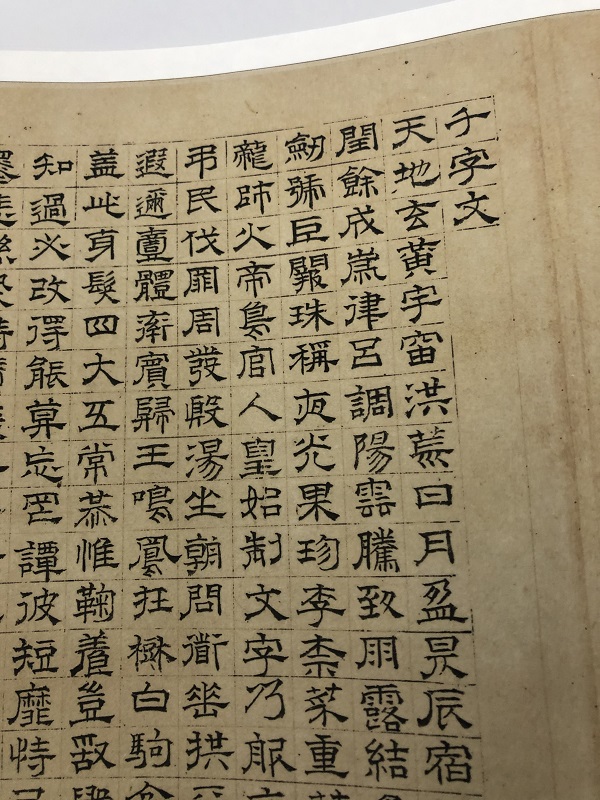 千字文
天地玄黃宇宙洪荒日月盈昃辰宿
閏餘成嵗律呂調陽雲騰致雨露結
劒號臣闕珠稱夜光果珍李柰菜重
龍師火帝鳥官人皇始制文字乃服
弔民伐罪周發殷湯坐朝問道垂拱
遐邇壹體率賓歸王鳴鳳在樹白駒
蓋此身髮四大五常恭惟鞠養豈敢
知過必改得能莫忘罔談彼短靡恃